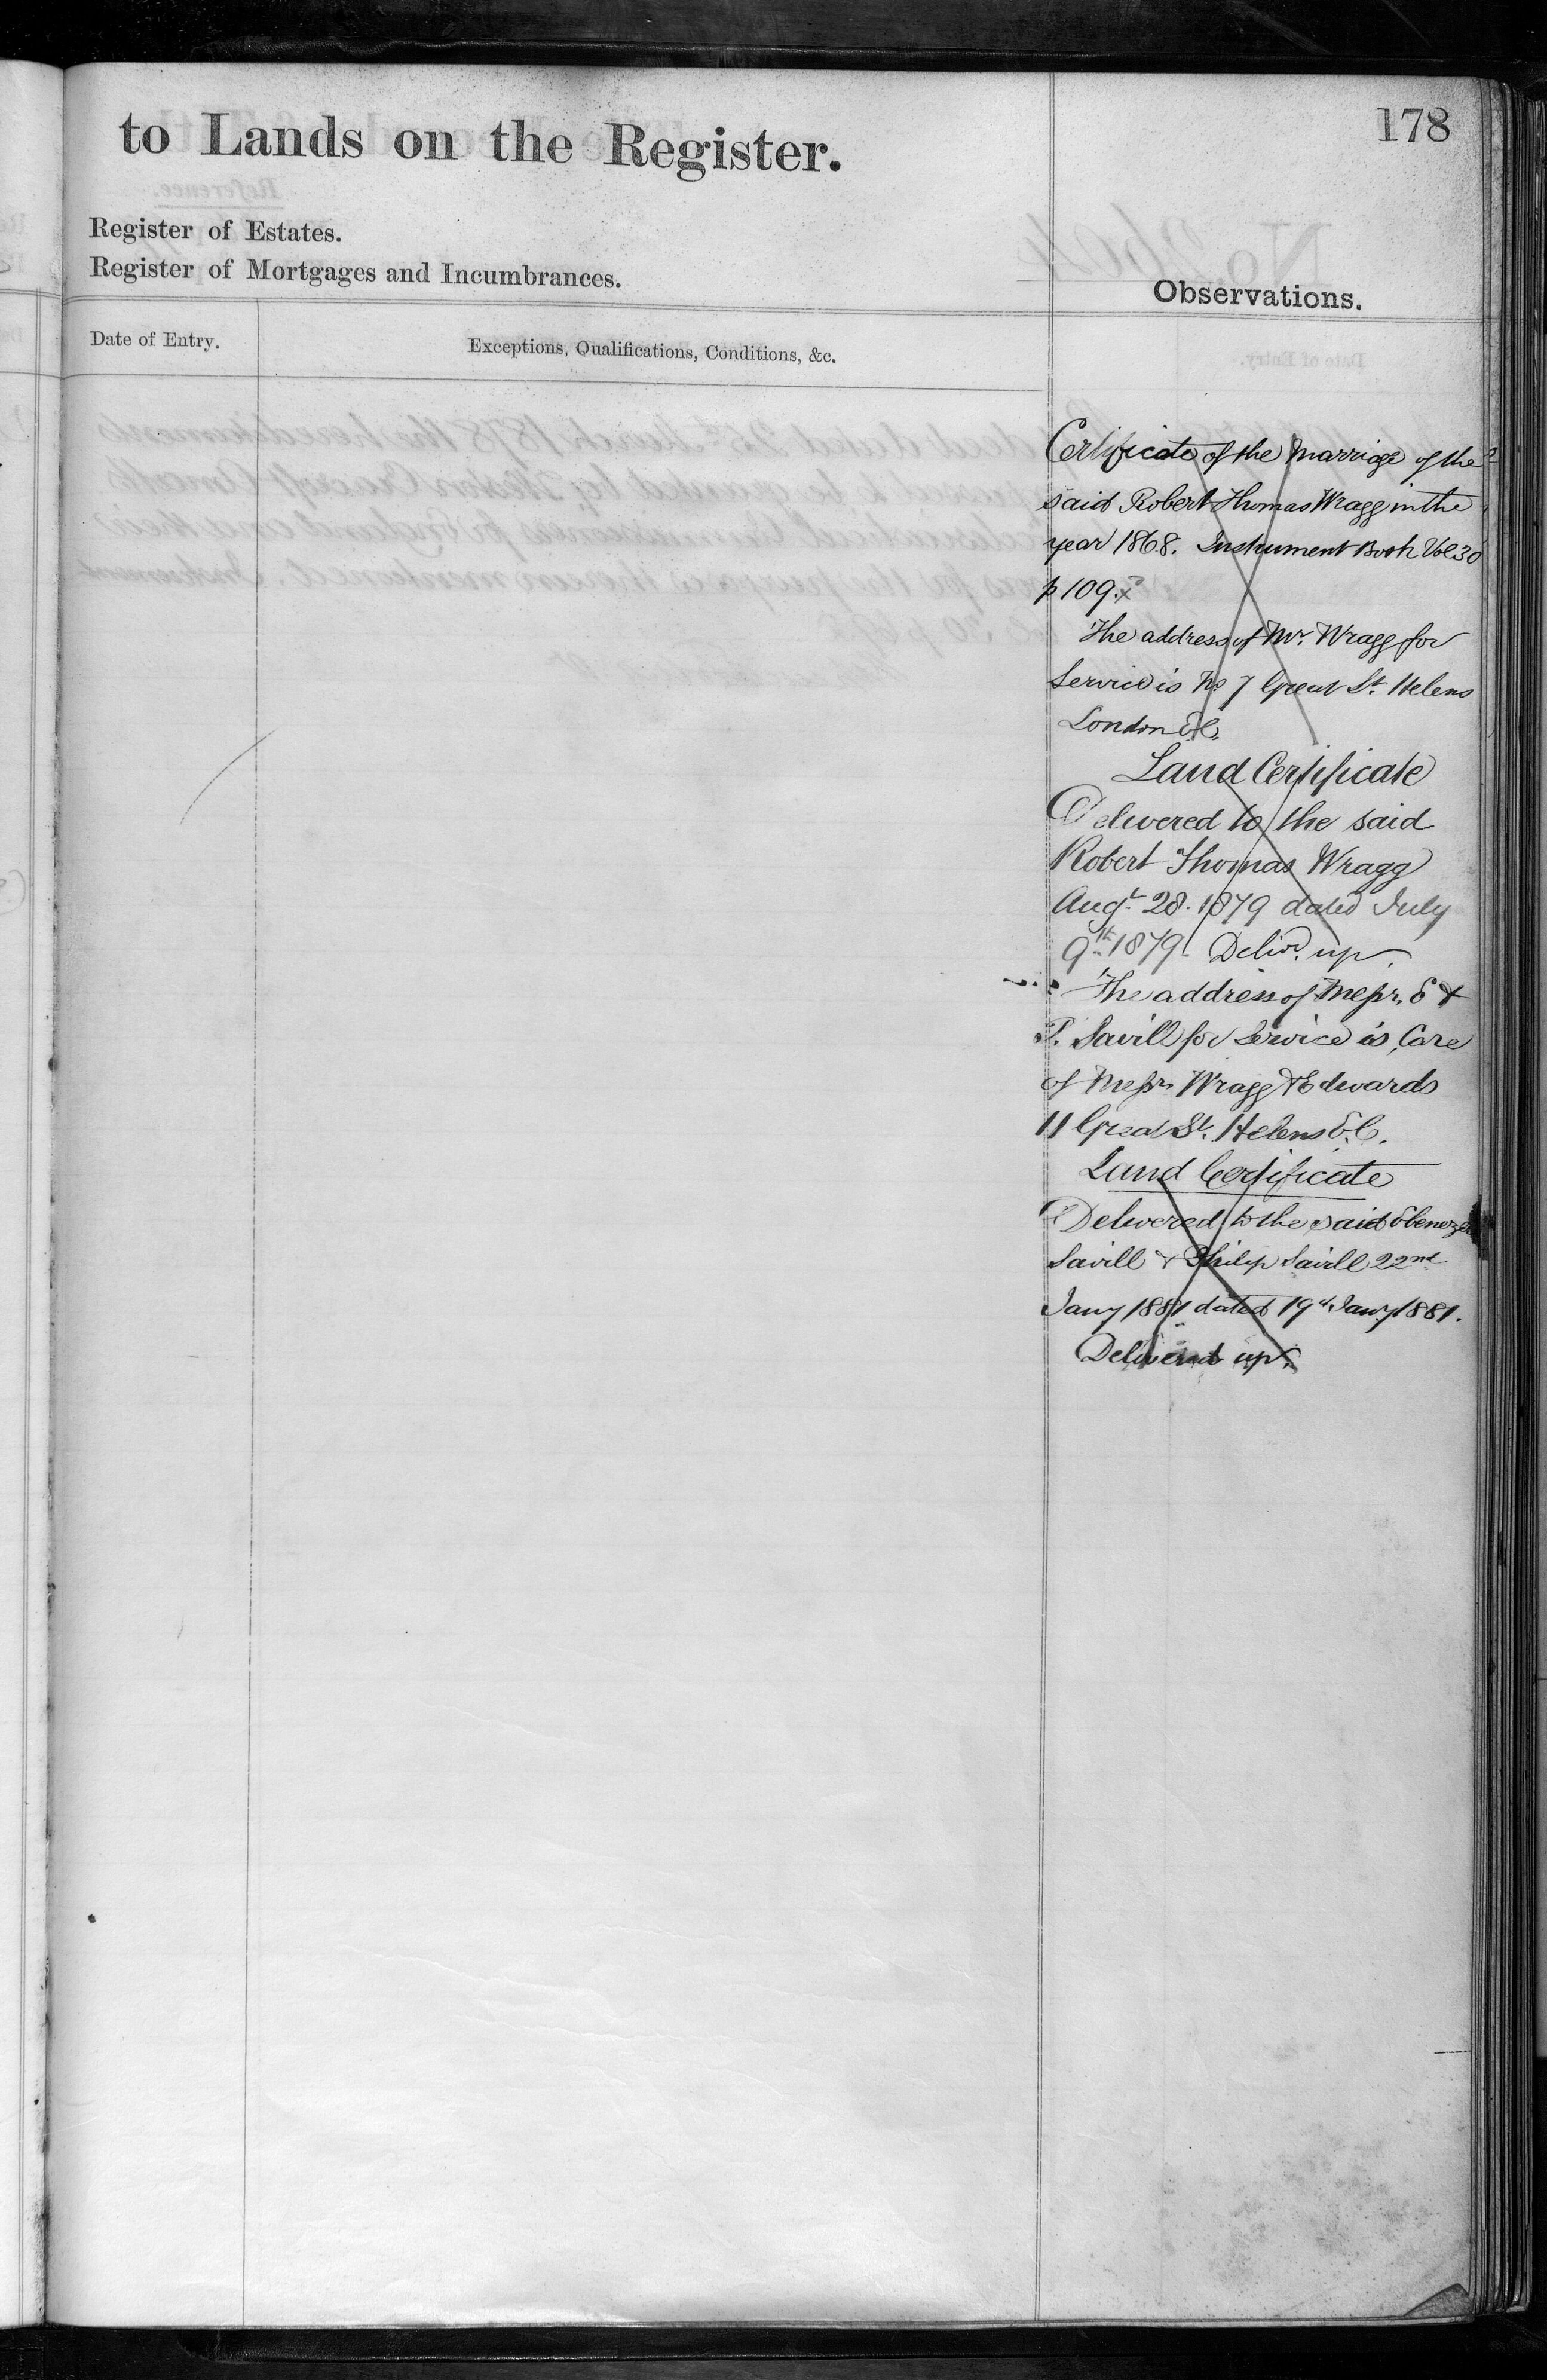 178
to Lands on the Register.
Register of Estates.
Register of Mortgages and Incumbrances.
Observations.
Date of Entry.
Exceptions, Qualifications, Conditions, &c.
Certificate of the Marriage of the
said Robert Thomas Wragg in the
year 1868. Instrument Book Vol 30
p 109.
The address of Mr. Wragg for
Service is No 7 Great St. Helens
London E.C.
Land Certificate
Delivered to the said
Robert Thomas Wragg
Augt. 28. 1879 dated July
9th. 1879. Delivd. up.
The address of Messrs. E &
P. Savill for Service is, Care
of Messrs Wragg & Edwards
11 Great St. Helens E.C.
Land Certificate
Delivered to the said Ebenezer
Savill & Philip Savill 22nd
Jany 1881 dated 19th Jany 1881.
Delivered up.